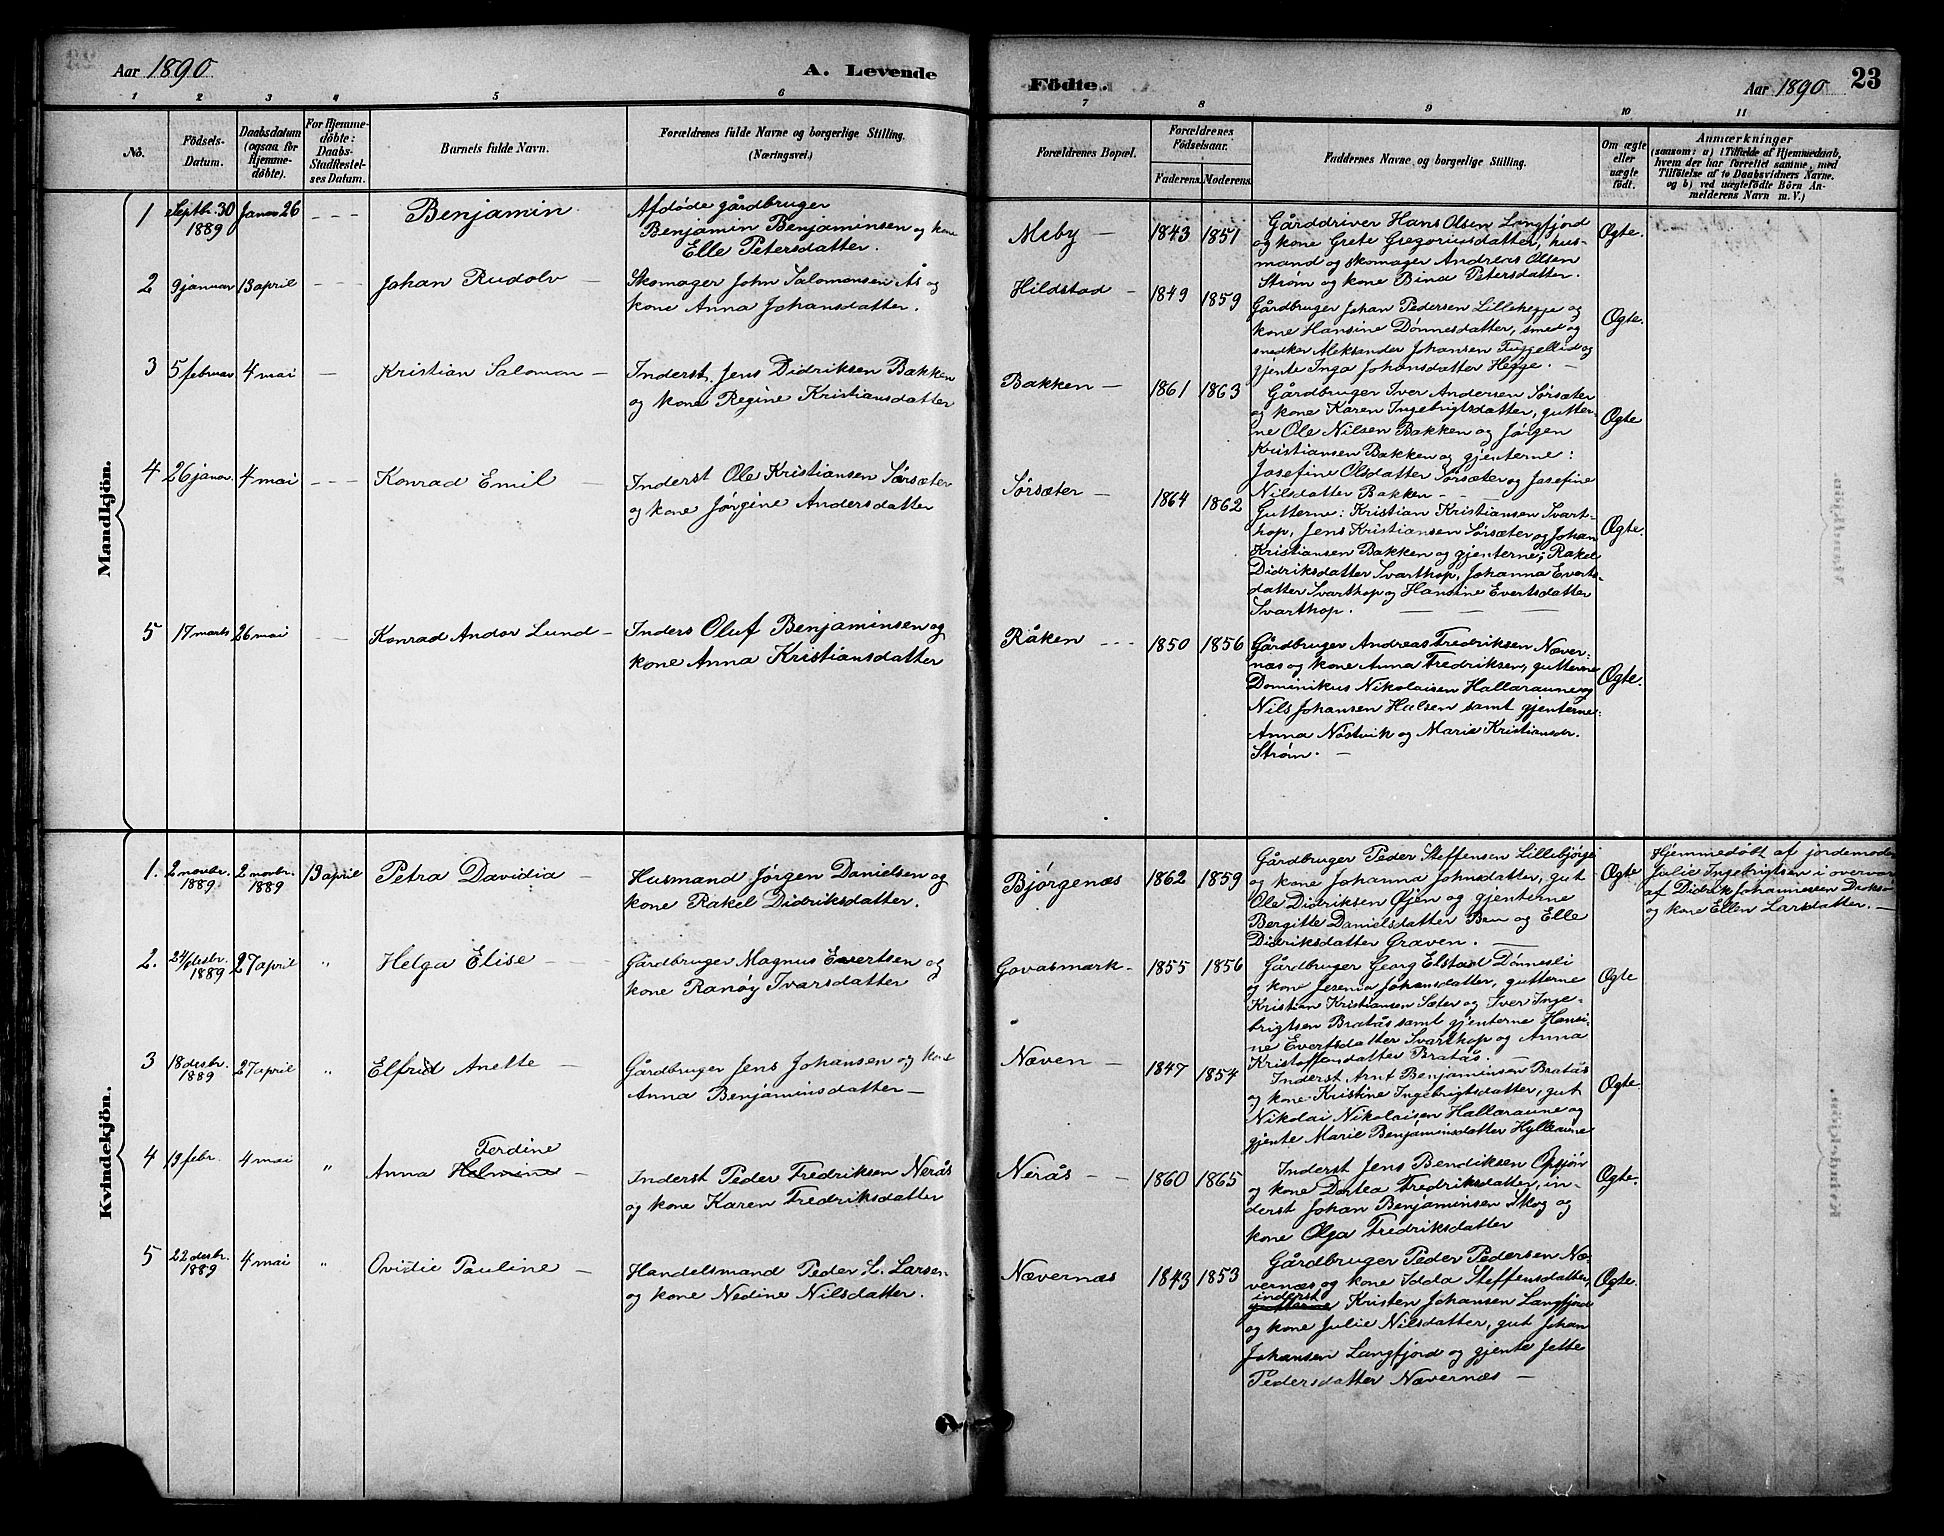 Aar 1890
A. Levende
Födte.
Aar 1890
23
1 2 3 4 5 6 7 8 9 10 11
No.
Födsels-
Datum.
Daabsdatum
(ogsaa for
Hjemme-
döbte).
For Hjemme-
döbte:
Daabs-
Stadfæstel-
ses Datum.
Barnets fulde Navn.
Forældrenes fulde Navne og borgerlige Stilling.
(Næringsvei.)
Forældrenes Bopæl.
Forældrenes
Födselsaar.
Faderens.
Moderens.
Faddernes Navne og borgerlige Stilling.
Om ægte
eller
uægte
födt.
Anmærkninger
(saasom: a) i Tilfælde af Hjemmedaab,
hvem der har forrettet samme, med
Tilföielse af to Daabsvidners Navne,
og b) ved uægtefödte Börn An-
melderens Navn m. V.)
Mandkjön.
1
Septbr. 30
1889
Januar 26
Benjamin
Afdøde gårdbruger
Benjamin Benjaminsen og kone
Elle Petersdatter.
Meby
1843
1851
Gårddriver Hans Olsen Langfjord
og kone Grete Gregoriusdatter, hus-
mand og skomager Andreas Olsen
Strøm og kone Bina Petersdatter.
Ægte.
2
9 januar
13 april
Johan Rudolv
Skomager John Salomonsen Ås og
kone Anna Johansdatter.
Hildstad
1849
1859
Gårdbruger Johan Pedersen Lillehegje og
kone Hansine Dønnesdatter, smed og
snedker Aleksander Johansen og
gjente Inga Johansdatter Hegge.
Ægte.
3
5 februar
4 mai
Kristian Salomon
Inderst. Jens Didriksen Bakken
og kone Regine Kristiansdatter
Bakken
1861
1863
Gårdbruger Iver Andersen Sørsæter
og kone Karen Ingebrigtsdatter, gutter-
ne Ole Nilsen Bakken og Jørgen
Kristiansen Bakken og gjenterne:
Josefine Olsdatter Sørsæter og Josefine
Nilsdatter Bakken
Ægte
4
26 januar
4 mai
Konrad Emil
Inderst Ole Kristiansen Sørsæter
og kone Jørgine Andersdatter
Sørsæter
1864
1862
Gutterne: Kristian Kristiansen Svart-
hop, Jens Kristiansen Sørsæter og Johan
Kristiansen Bakken og gjenterne; Rakel
Didriksdatter Svarthop, Johanna Everts-
datter Svarthop og Hansine Evertsdatter
Svarthop.
Ægte.
5
17 marts
26 mai
Konrad Andor Lund
Inders Oluf Benjaminsen og
kone Anna Kristiansdatter
Råken
1850
1856
Gårdbruger Andreas Fredriksen Næver-
næs og kone Anna Fredriksen, gutterne
Dominikus Nikolaisen Hallaraune og
Nils Johansen Halsen samt gjenterne:
Anna Nøstvik og Marie Kristiansdr.
Strøm.
Ægte.
Kvindekjön.
1.
2 novbr.
1889
2 novbr.
1889
13 april
Petra Davidia
Husmand Jørgen Danielsen og
kone Rakel Didriksdatter.
Bjørgenæs
1862
1859
Gårdbruger Peder Steffensen Lillebjørge
og kone Johanna Johnsdatter, gut
Ole Didriksen Øjen og gjenterne
Bergitte Danielsdatter Bru og Elle
Didriksdatter Graven.
Ægte
Hjemmedøbt af jordemoder
Julie Ingebrigtsen i overvær
af Didrik Johannessen
og kone Ellen Larsdatter.
2.
24/desbr.
1889
27 april
"
Helga Elise
Gårdbruger Magnus Evertsen og
kone Ranøy Ivarsdatter
Govasmark
1855
1856
Gårdbruger Georg Elstad Dønnesli
og kone Jesenia Johansdatter, gutterne
Kristian Kristiansen Sæter og Iver Inge-
brigtsen Bratås samt gjenterne Hansi-
ne Evertsdatter Svarthop og Anna
Kristoffersdatter Bratås.
Ægte
3
18 desbr.
1889
27 april
"
Elfrid Anette
Gårdbruger Jens Johansen og kone
Anna Benjaminsdatter
Næven
1847
1854
Inderst Arnt Benjaminsen Bratås
og kone Kristine Ingebrigtsdatter, gut
Nikolai Nikolaisen Hallaraune og
gjente Marie Benjaminsdatter Hylleraune
Ægte.
4
13 febr.
4 mai
"
Ferdine
Anna Halmine
Inderst Peder Fredriksen Nerås
og kone Karen Fredriksdatter
Nerås
1860
1865
Inderst Jens Bendiksen Opsjøn
og kone Dortea Fredriksdatter, in-
derst Johan Benjaminsen Skog og
kone Olga Fredriksdatter
Ægte.
5
22 desbr.
1889
4 mai
"
Ovidie Pauline
Handelsmand Peder L. Larsen
og kone Nedine Nilsdatter.
Nævernæs
1843
1853
Gårdbruger Peder Pedersen Næ-
vernæs og kone Idda Steffensdatter,
inderst
gutterne Kristen Johansen Langfjord
og kone Julie Nilsdatter, gut Johan
Johansen Langfjord og gjente Jette
Pedersdatter Nævernæs
Ægte.